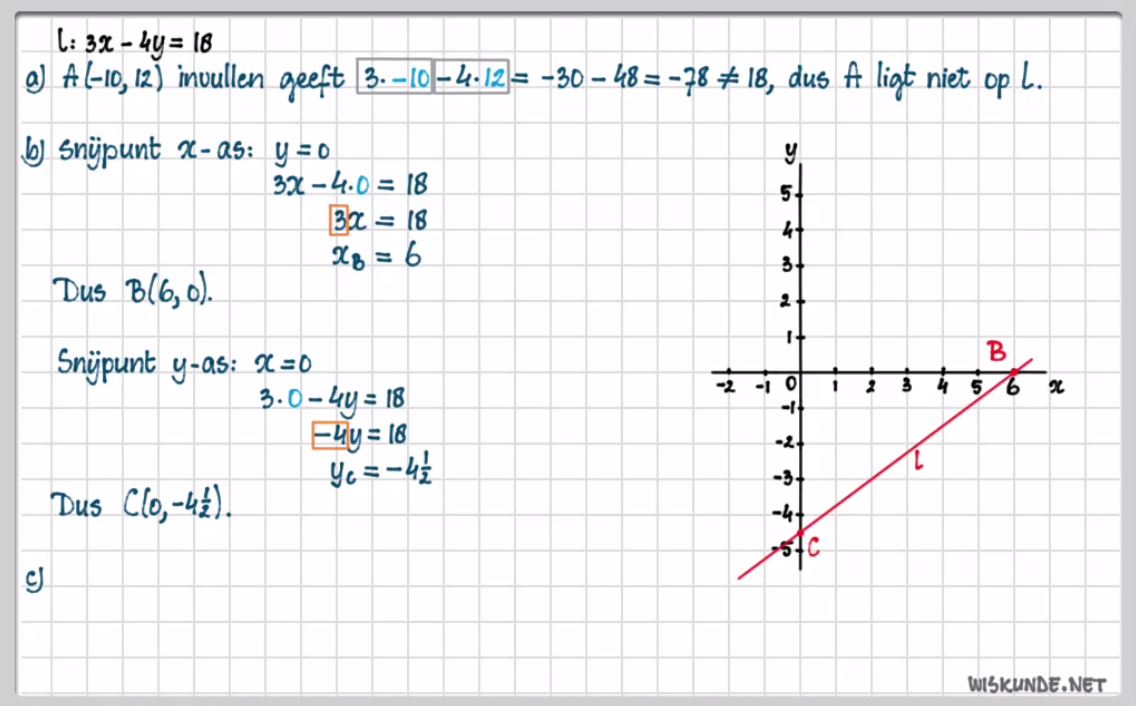 l: 3x - 4y = 18
a) A(-10, 12) invullen geeft 3·-10 -4·12 = -30 - 48 = -78 ≠ 18, dus A ligt niet op l.
b) Snijpunt x-as: y = 0
3x - 4·0 = 18
3x = 18
x_B = 6
Dus B(6, 0).
Snijpunt y-as: x = 0
3·0 - 4y = 18
-4y = 18
y_C = -4½
Dus C(0, -4½).
c)
y
5
4
3
2
1
B
-2 -1 0 1 2 3 4 5 6 x
-1
-2
l
-3
-4
-5 C
WISKUNDE.NET